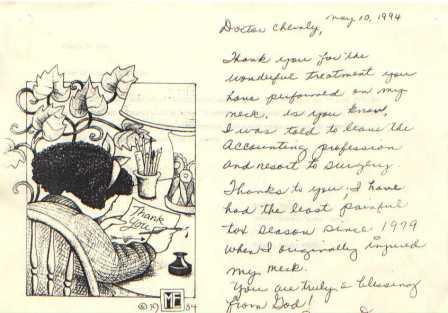 May 10, 1994
Doctor Chevaly,
Thank you for the
wonderful treatment you
have performed on my
neck. As you know,
I was told to leave the
Accounting profession
and resort to surgery.
Thanks to you, I have
had the least painful
tax season since 1979
when I originally injured
my neck.
You are truly a blessing
from God!
Thank
You
ME
84